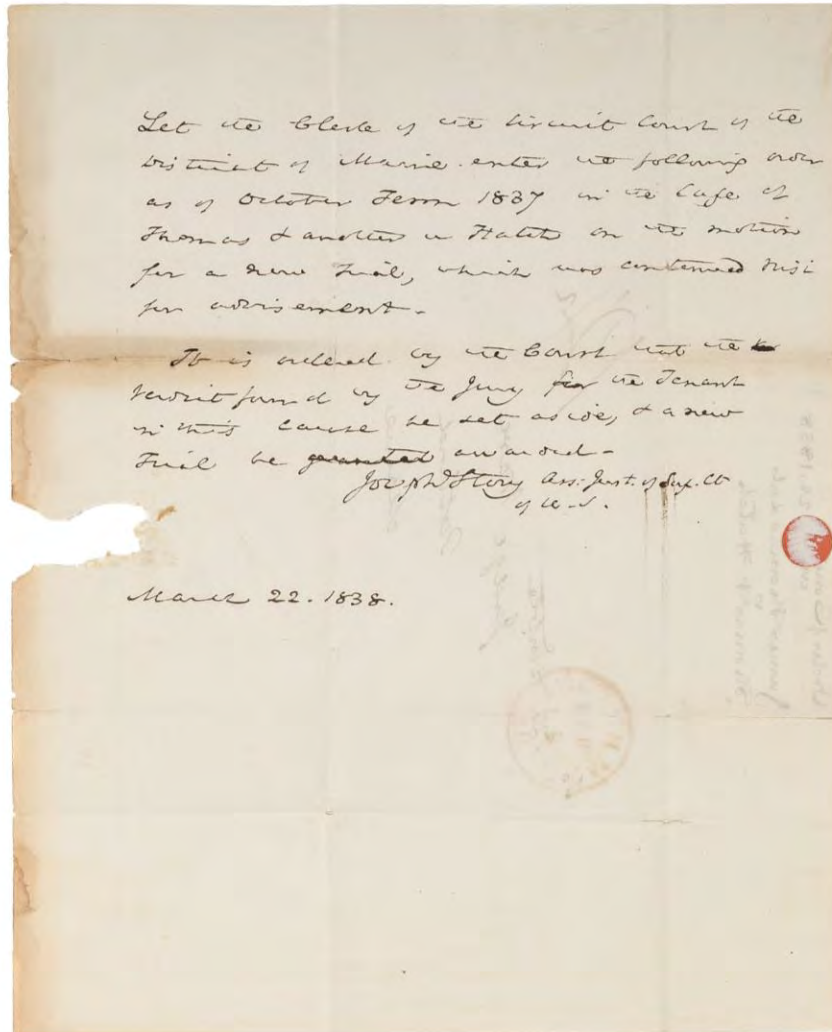 Let the Clerk of the Circuit Court of the
District of Maine enter the following order
as of October Term 1837 in the Case of
Thomas & another v Hatch on the motion
for a new Trial, which was continued nisi
for advisement.
It is ordered by the Court that the
verdict found by the Jury for the Tenant
in this Cause be set aside, & a new
Trial be granted awarded.
Joseph Story Ass. Just. of Sup. Ct
of U.S.
March 22. 1838.